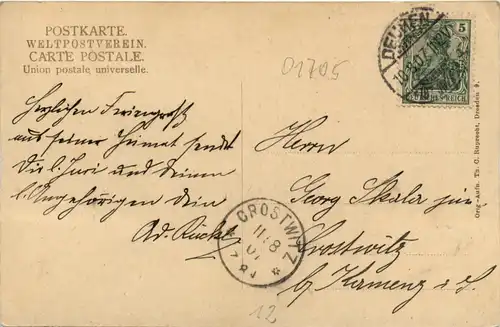 POSTKARTE.
WELTPOSTVEREIN.
CARTE POSTALE.
Union postale universelle.
01705
DEUBEN
5
DEUTSCHES REICH
Herzlichen Feriengruß
aus seiner Heimat sendet
Dir l. Juri und Deinen
l. Angehörigen Dein
Ad. Rückl
Herrn
Georg Skala jun
Crostwitz
b/ Kamenz i. S.
CROSTWITZ
11 8
07
7-8 V
12
Orig.-Aufn. Th. C. Ruprecht, Dresden 9.